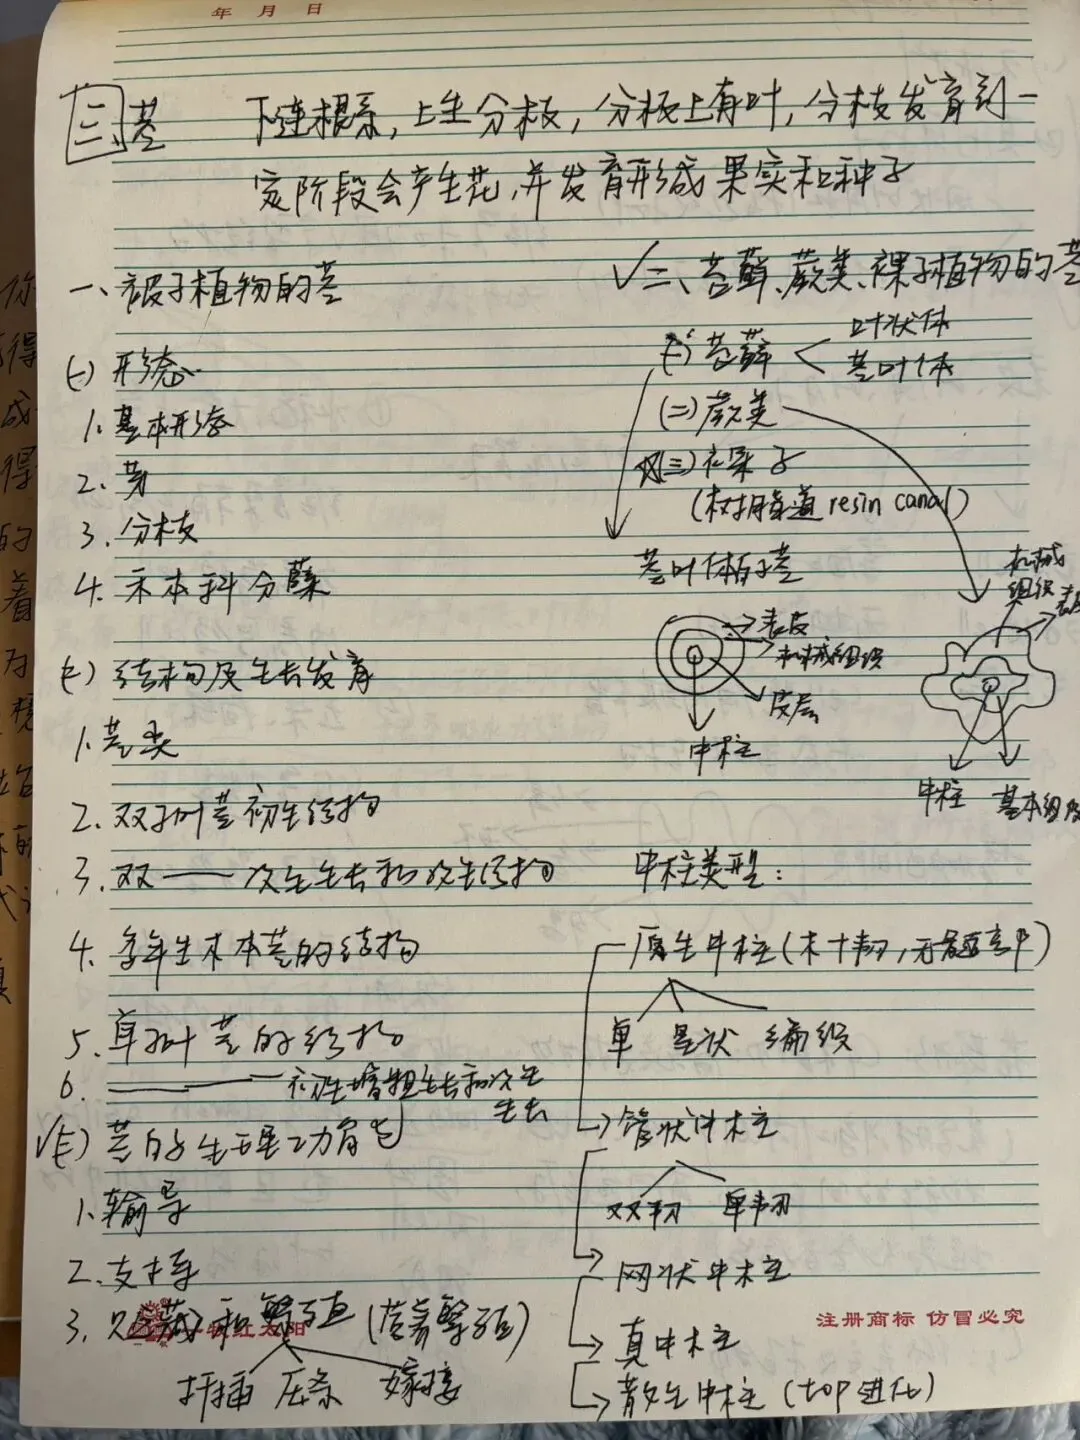 年 月 日
三、茎 下连根系，上生分枝，分枝上有叶，分枝发育到一
定阶段会产生花，并发育形成果实和种子
一、被子植物的茎
(一) 形态
1. 基本形态
2. 芽
3. 分枝
4. 禾本科分蘖
(二) 结构及生长发育
1. 茎尖
2. 双子叶茎初生结构
3. 双—— 次生生长和次生结构
4. 多年生木本茎的结构
5. 单子叶茎的结构
6. ———— 初生增粗生长和次生
生长
√(三) 茎的生理功能
1. 输导
2. 支持
3. 贮藏和繁殖 (营养繁殖)
扦插 压条 嫁接
√二、苔藓、蕨类、裸子植物的茎
(一) 苔藓 < 叶状体
茎叶体
(二) 蕨类
(三) 裸子
(树脂道 resin canal)
茎叶体的茎
表皮
机械组织
皮层
中柱
机械
组织
表皮
中柱
基本组织
中柱类型：
原生中柱 (木+韧，无髓部)
单 星状 编织
管状中柱
双韧 单韧
网状中柱
真中柱
散生中柱 (top进化)
红太阳
注册商标 仿冒必究